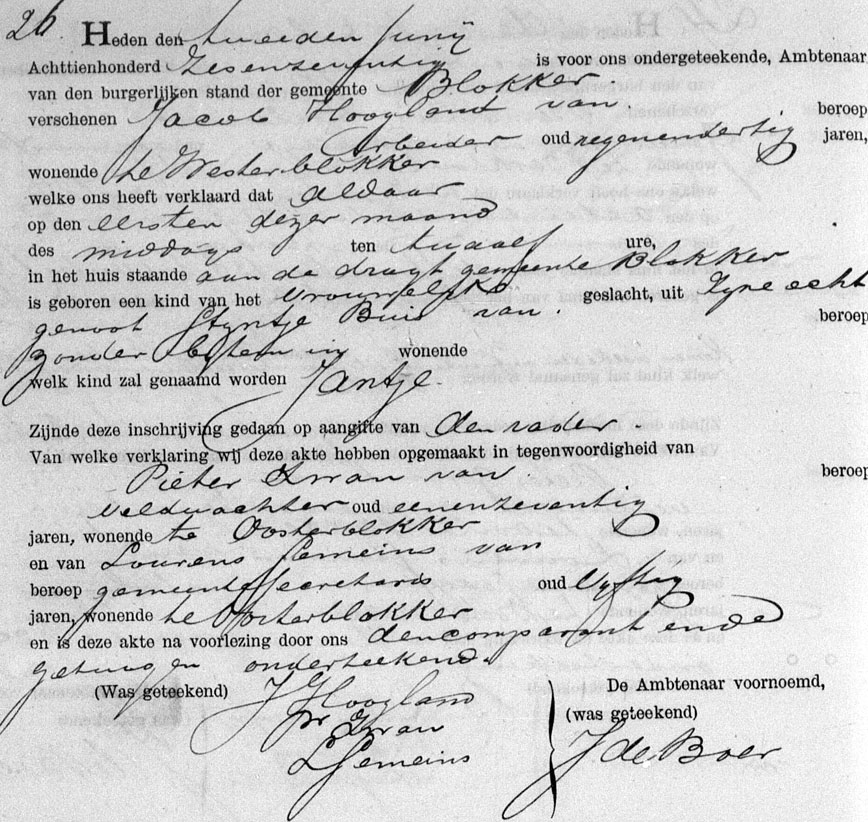 26. Heden den tweeden Junij
Achttienhonderd Zesenzeventig is voor ons ondergeteekende, Ambtenaar
van den burgerlijken stand der gemeente Blokker
verschenen Jacob Hoogland van beroep
Arbeider oud negenendertig jaren,
wonende te Westerblokker
welke ons heeft verklaard dat aldaar
op den eersten dezer maand
des middags ten twaalf ure,
in het huis staande aan de dragt gemeente Blokker
is geboren een kind van het vrouwelijke geslacht, uit zyne echt
genoot Styntje Buis van beroep
zonder wonende
welk kind zal genaamd worden Jantje.
Zijnde deze inschrijving gedaan op aangifte van den vader.
Van welke verklaring wij deze akte hebben opgemaakt in tegenwoordigheid van
Pieter Zwan van beroep
veldwachter oud eenenzeventig
jaren, wonende te Oosterblokker
en van Lourens Gemeins van
beroep gemeentesecretaris oud vyftig
jaren, wonende te Oosterblokker
en is deze akte na voorlezing door ons den comparant en de
getuigen onderteekend.
(Was geteekend) J Hoogland De Ambtenaar voornoemd,
Pr Zwan (was geteekend)
L Gemeins J de Boer